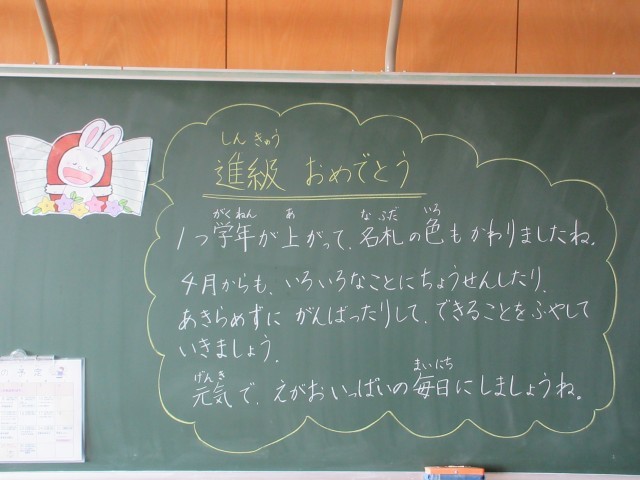 しん きゅう
進級 おめでとう
がくねん あ なふだ いろ
1つ学年が上がって、名札の色もかわりましたね。
4月からも、いろいろなことにちょうせんしたり、
あきらめずに がんばったりして、できることをふやして
いきましょう。
げんき まいにち
元気で、えがおいっぱいの毎日にしましょうね。
の予定